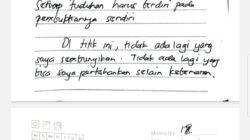 Setiap tuduhan harus berdiri pada
pembuktiannya sendiri
Di titik ini, tidak ada lagi yang
saya sembunyikan. Tidak ada lagi yang
bisa saya pertahankan selain kebenaran.
18